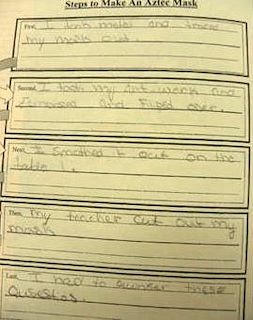 Steps to Make An Aztec Mask
First, I and trace
my mask out.
Second, I took my art work and
and fliped over.
Next, I smothed it out on the
table 1.
Then, my teacher cut out my
mask
Last, I had to qwnser these
Qusestos.